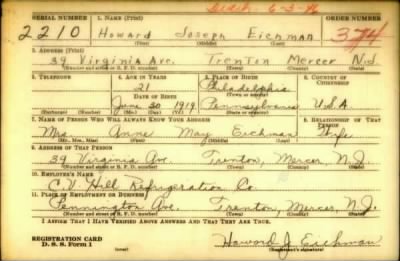 Disch. 6-3-46
SERIAL NUMBER 1. NAME (Print) ORDER NUMBER
2210 Howard Joseph Eichman 374
(First) (Middle) (Last)
2. ADDRESS (Print)
39 Virginia Ave. Trenton Mercer N.J.
(Number and street or R. F. D. number) (Town) (County) (State)
3. TELEPHONE 4. AGE IN YEARS 5. PLACE OF BIRTH 6. COUNTRY OF CITIZENSHIP
21 Philadelphia
DATE OF BIRTH (Town or county)
June 30 1919 Pennsylvania U.S.A.
(Exchange) (Number) (Mo.) (Day) (Yr.) (State or country)
7. NAME OF PERSON WHO WILL ALWAYS KNOW YOUR ADDRESS 8. RELATIONSHIP OF THAT PERSON
Mrs. Anne May Eichman Wife
(Mr., Mrs., Miss) (First) (Middle) (Last)
9. ADDRESS OF THAT PERSON
39 Virginia Ave. Trenton, Mercer, N.J.
(Number and street or R. F. D. number) (Town) (County) (State)
10. EMPLOYER'S NAME
C.V. Hill Refrigeration Co.
11. PLACE OF EMPLOYMENT OR BUSINESS
Pennington Ave. Trenton, Mercer, N.J.
(Number and street or R. F. D. number) (Town) (County) (State)
I AFFIRM THAT I HAVE VERIFIED ABOVE ANSWERS AND THAT THEY ARE TRUE.
REGISTRATION CARD
D. S. S. Form 1 (over) Howard J. Eichman
(Registrant's signature)